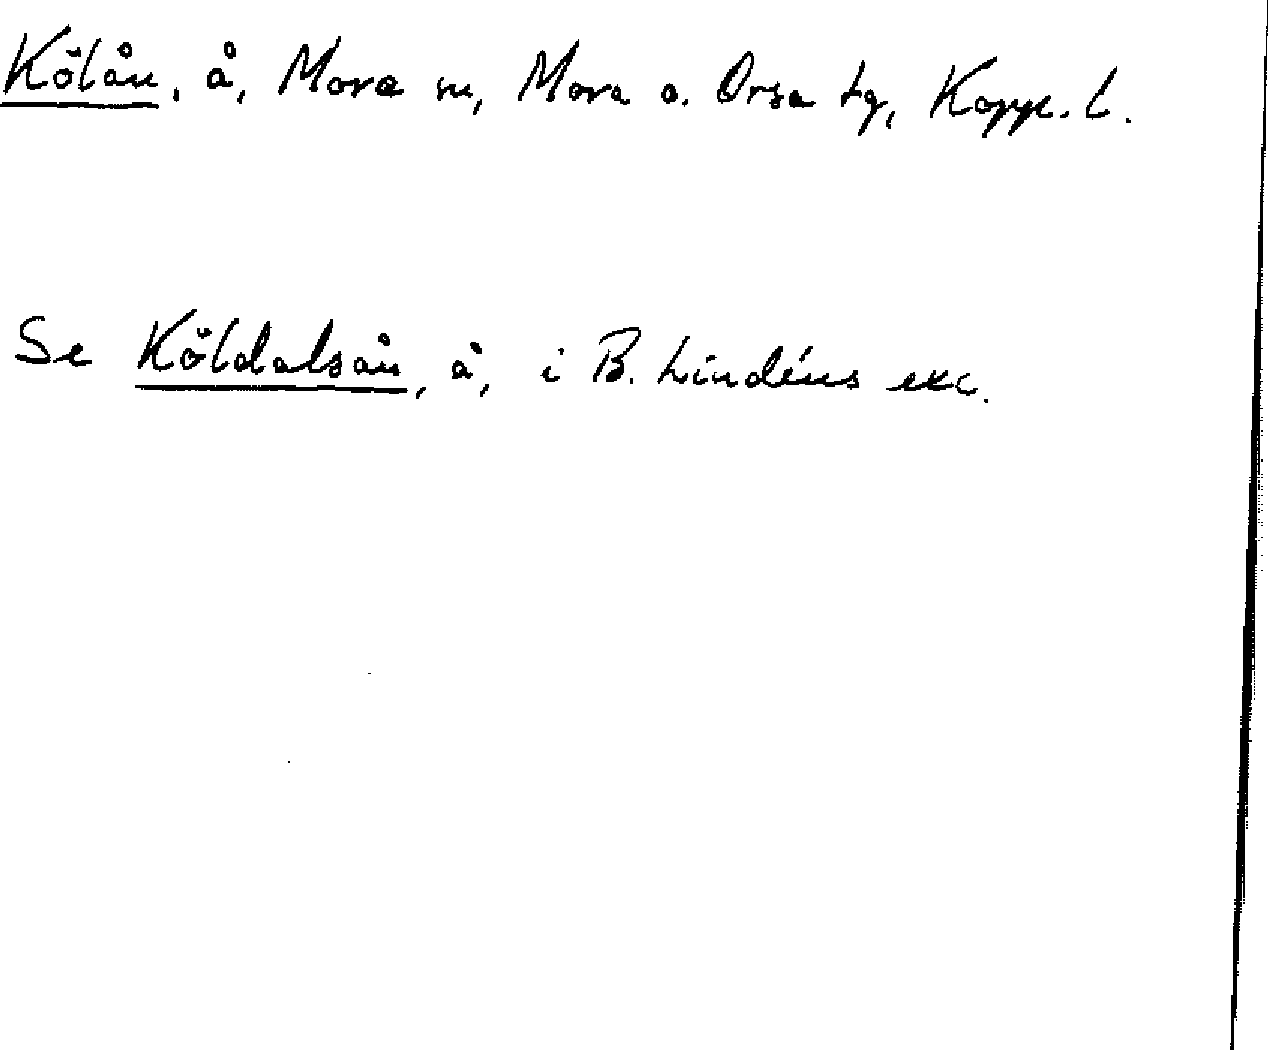 Kölån, å, Mora sn, Mora o. Orsa tg, Kopp. l.
Se Köldalsån, å, i B. Lindéns exc.